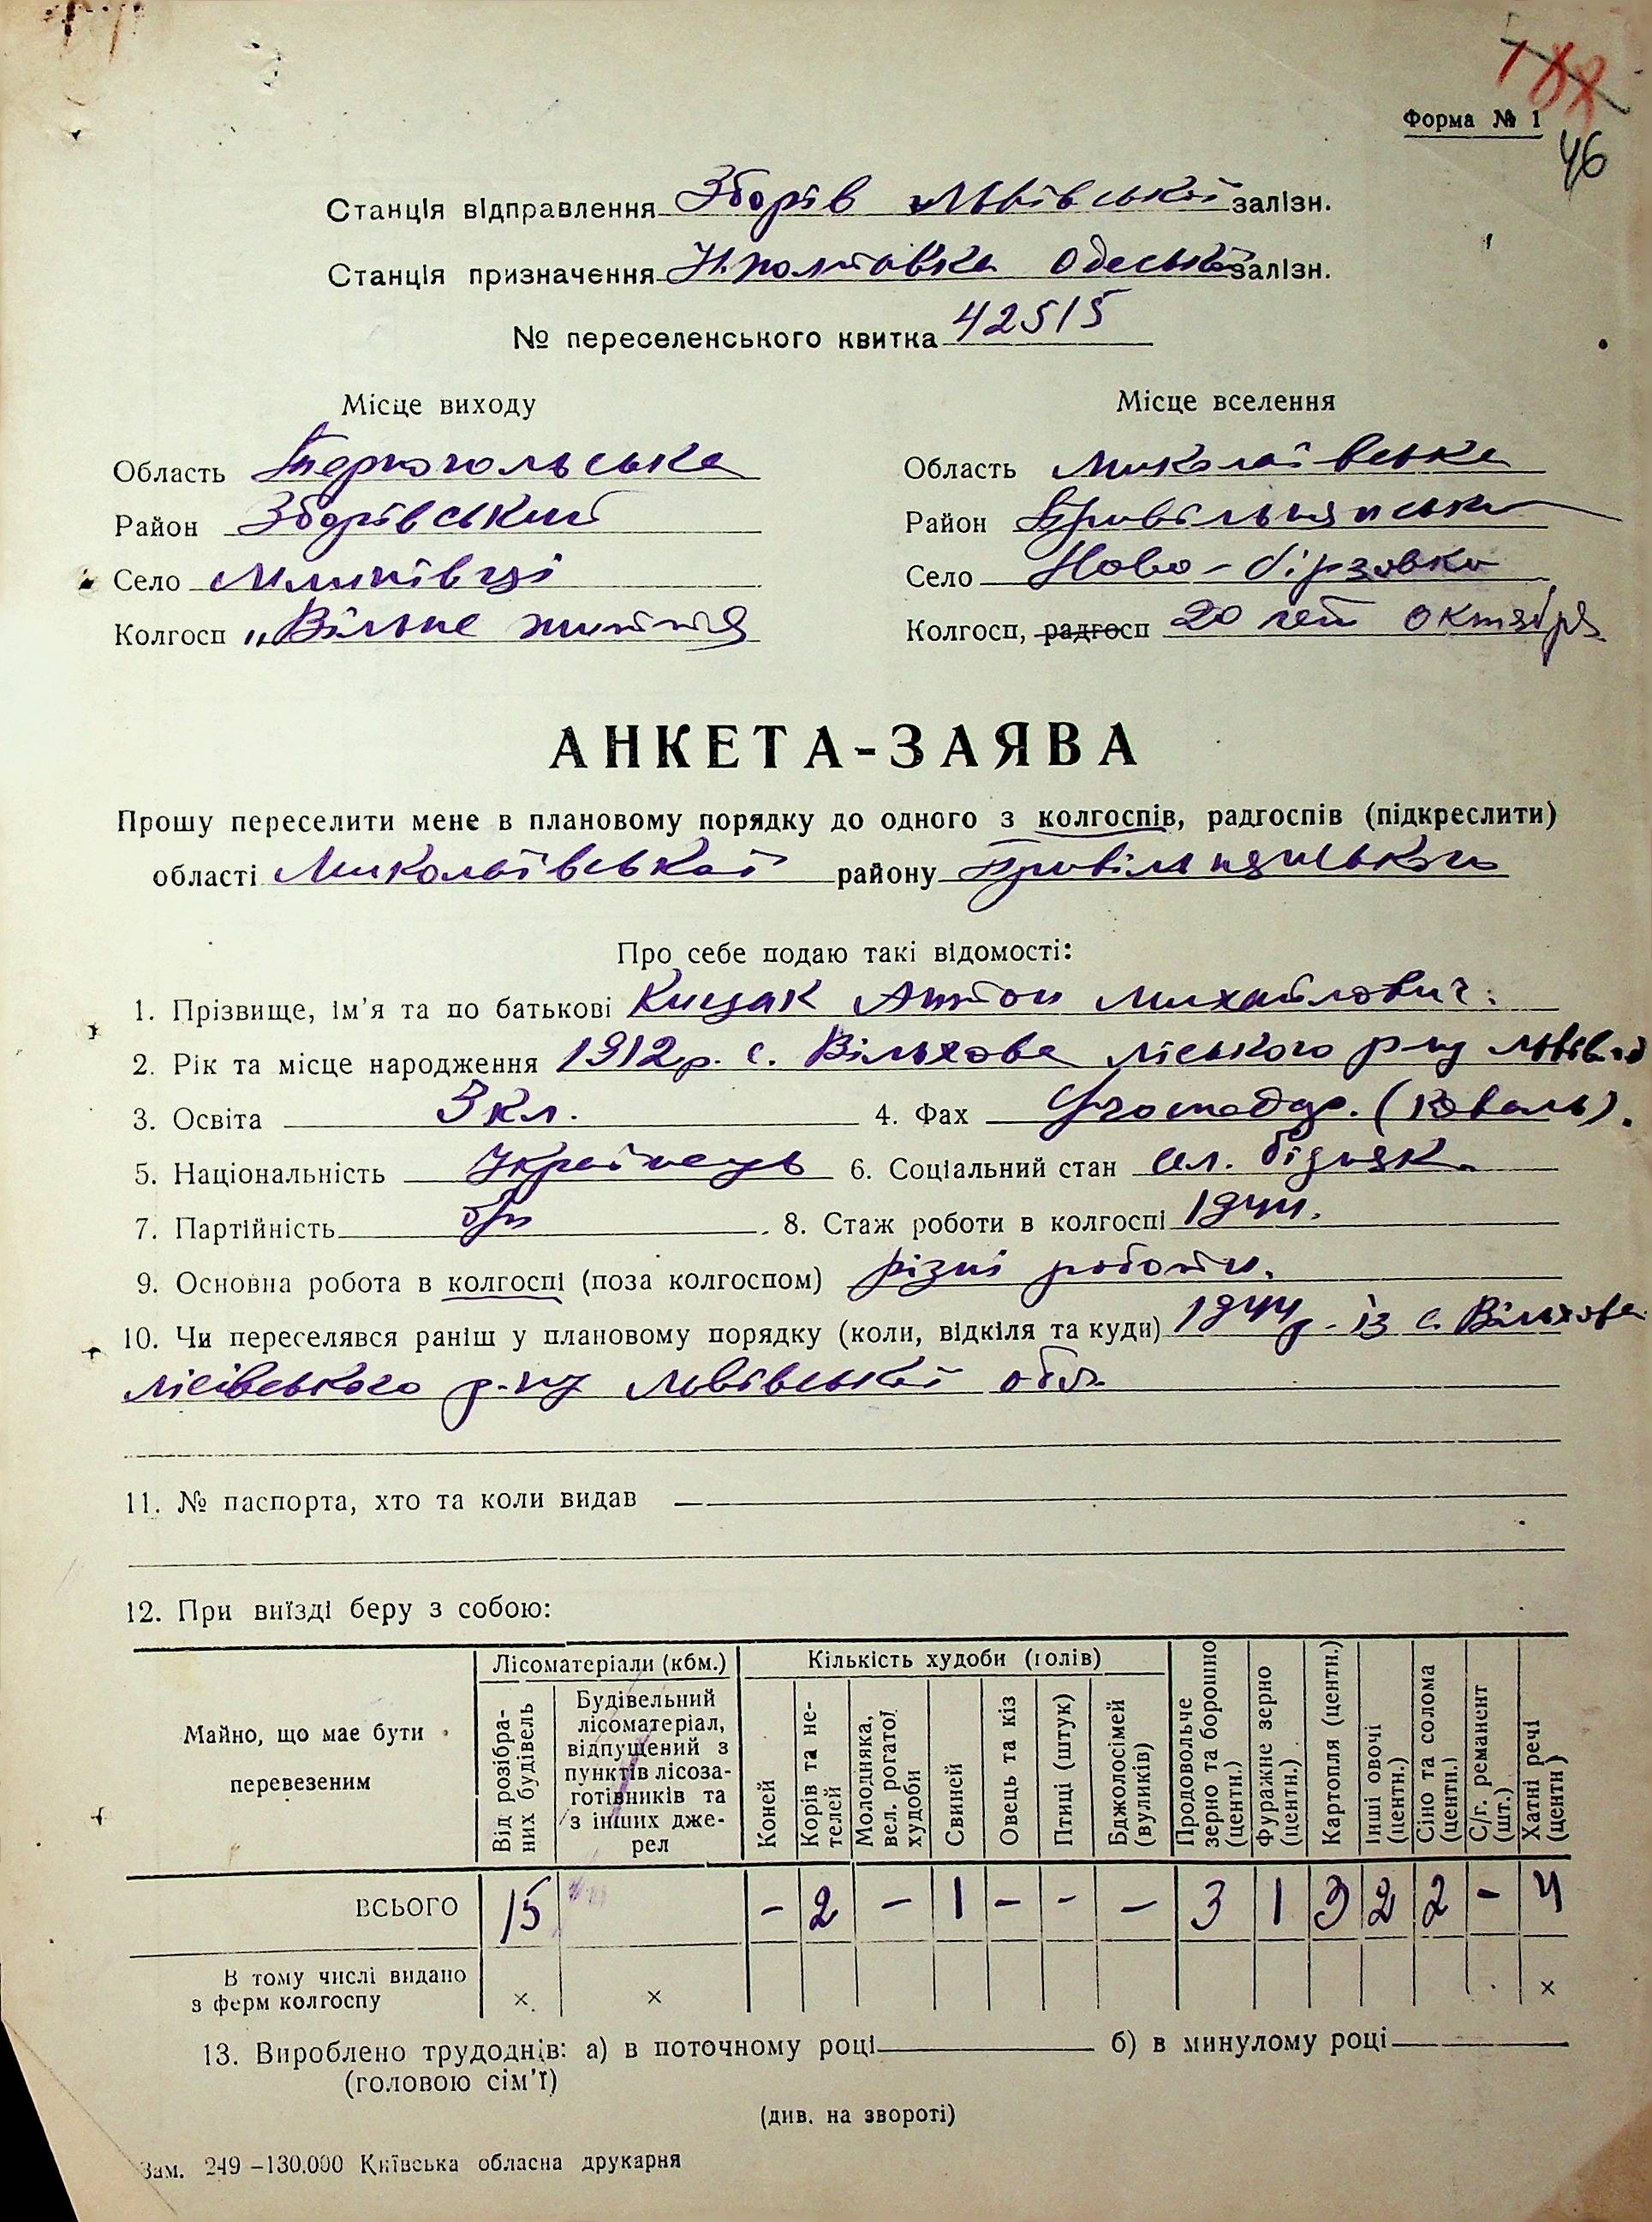 188
Форма № 1
46
Станція відправлення Зборів Львівської залізн.
Станція призначення Н. полтавка Одеської залізн.
№ переселенського квитка 42515
Місце виходу
Область Тернопольська
Район Зборівський
Село Млинівці
Колгосп „Вільне життя
Місце вселення
Область Миколаївська
Район Привільнянськи
Село Ново-бірзовка
Колгосп, радгосп 20 лет Октября
АНКЕТА-ЗАЯВА
Прошу переселити мене в плановому порядку до одного з колгоспів, радгоспів (підкреслити)
області Миколаївської району Привільнянського
Про себе подаю такі відомості:
1. Прізвище, ім'я та по батькові Кицак Антон Михайлович.
2. Рік та місце народження 1912 р. с. Вільхова ліського р-ну Львів.
3. Освіта 3 кл. 4. Фах (коваль).
5. Національність Українець 6. Соціальний стан сел. бідняк.
7. Партійність б/п 8. Стаж роботи в колгоспі 1944.
9. Основна робота в колгоспі (поза колгоспом) різні роботи.
10. Чи переселявся раніш у плановому порядку (коли, відкіля та куди) 1944 р. із с. Вільхова
лісівського р-ну Львівської обл.
11. № паспорта, хто та коли видав —
12. При виїзді беру з собою:
Майно, що має бути перевезеним
Лісоматеріали (кбм.)
Від розібраних будівель
Будівельний лісоматеріал, відпущений з пунктів лісозаготівників та з інших джерел
Кількість худоби (голів)
Коней
Корів та нетелей
Молодняка, вел. рогатої худоби
Свиней
Овець та кіз
Птиці (штук)
Бджолосімей (вуликів)
Продовольче зерно та борошно (центн.)
Фуражне зерно (центн.)
Картопля (центн.)
Інші овочі (центн.)
Сіно та солома (центн.)
С/г. реманент (шт.)
Хатні речі (центн)
ВСЬОГО 15 – 2 – 1 – – – 3 1 3 2 2 – 4
В тому числі видано з ферм колгоспу × × ×
13. Вироблено трудоднів: а) в поточному році б) в минулому році
(головою сім'ї)
(див. на звороті)
Зам. 249 –130.000 Київська обласна друкарня